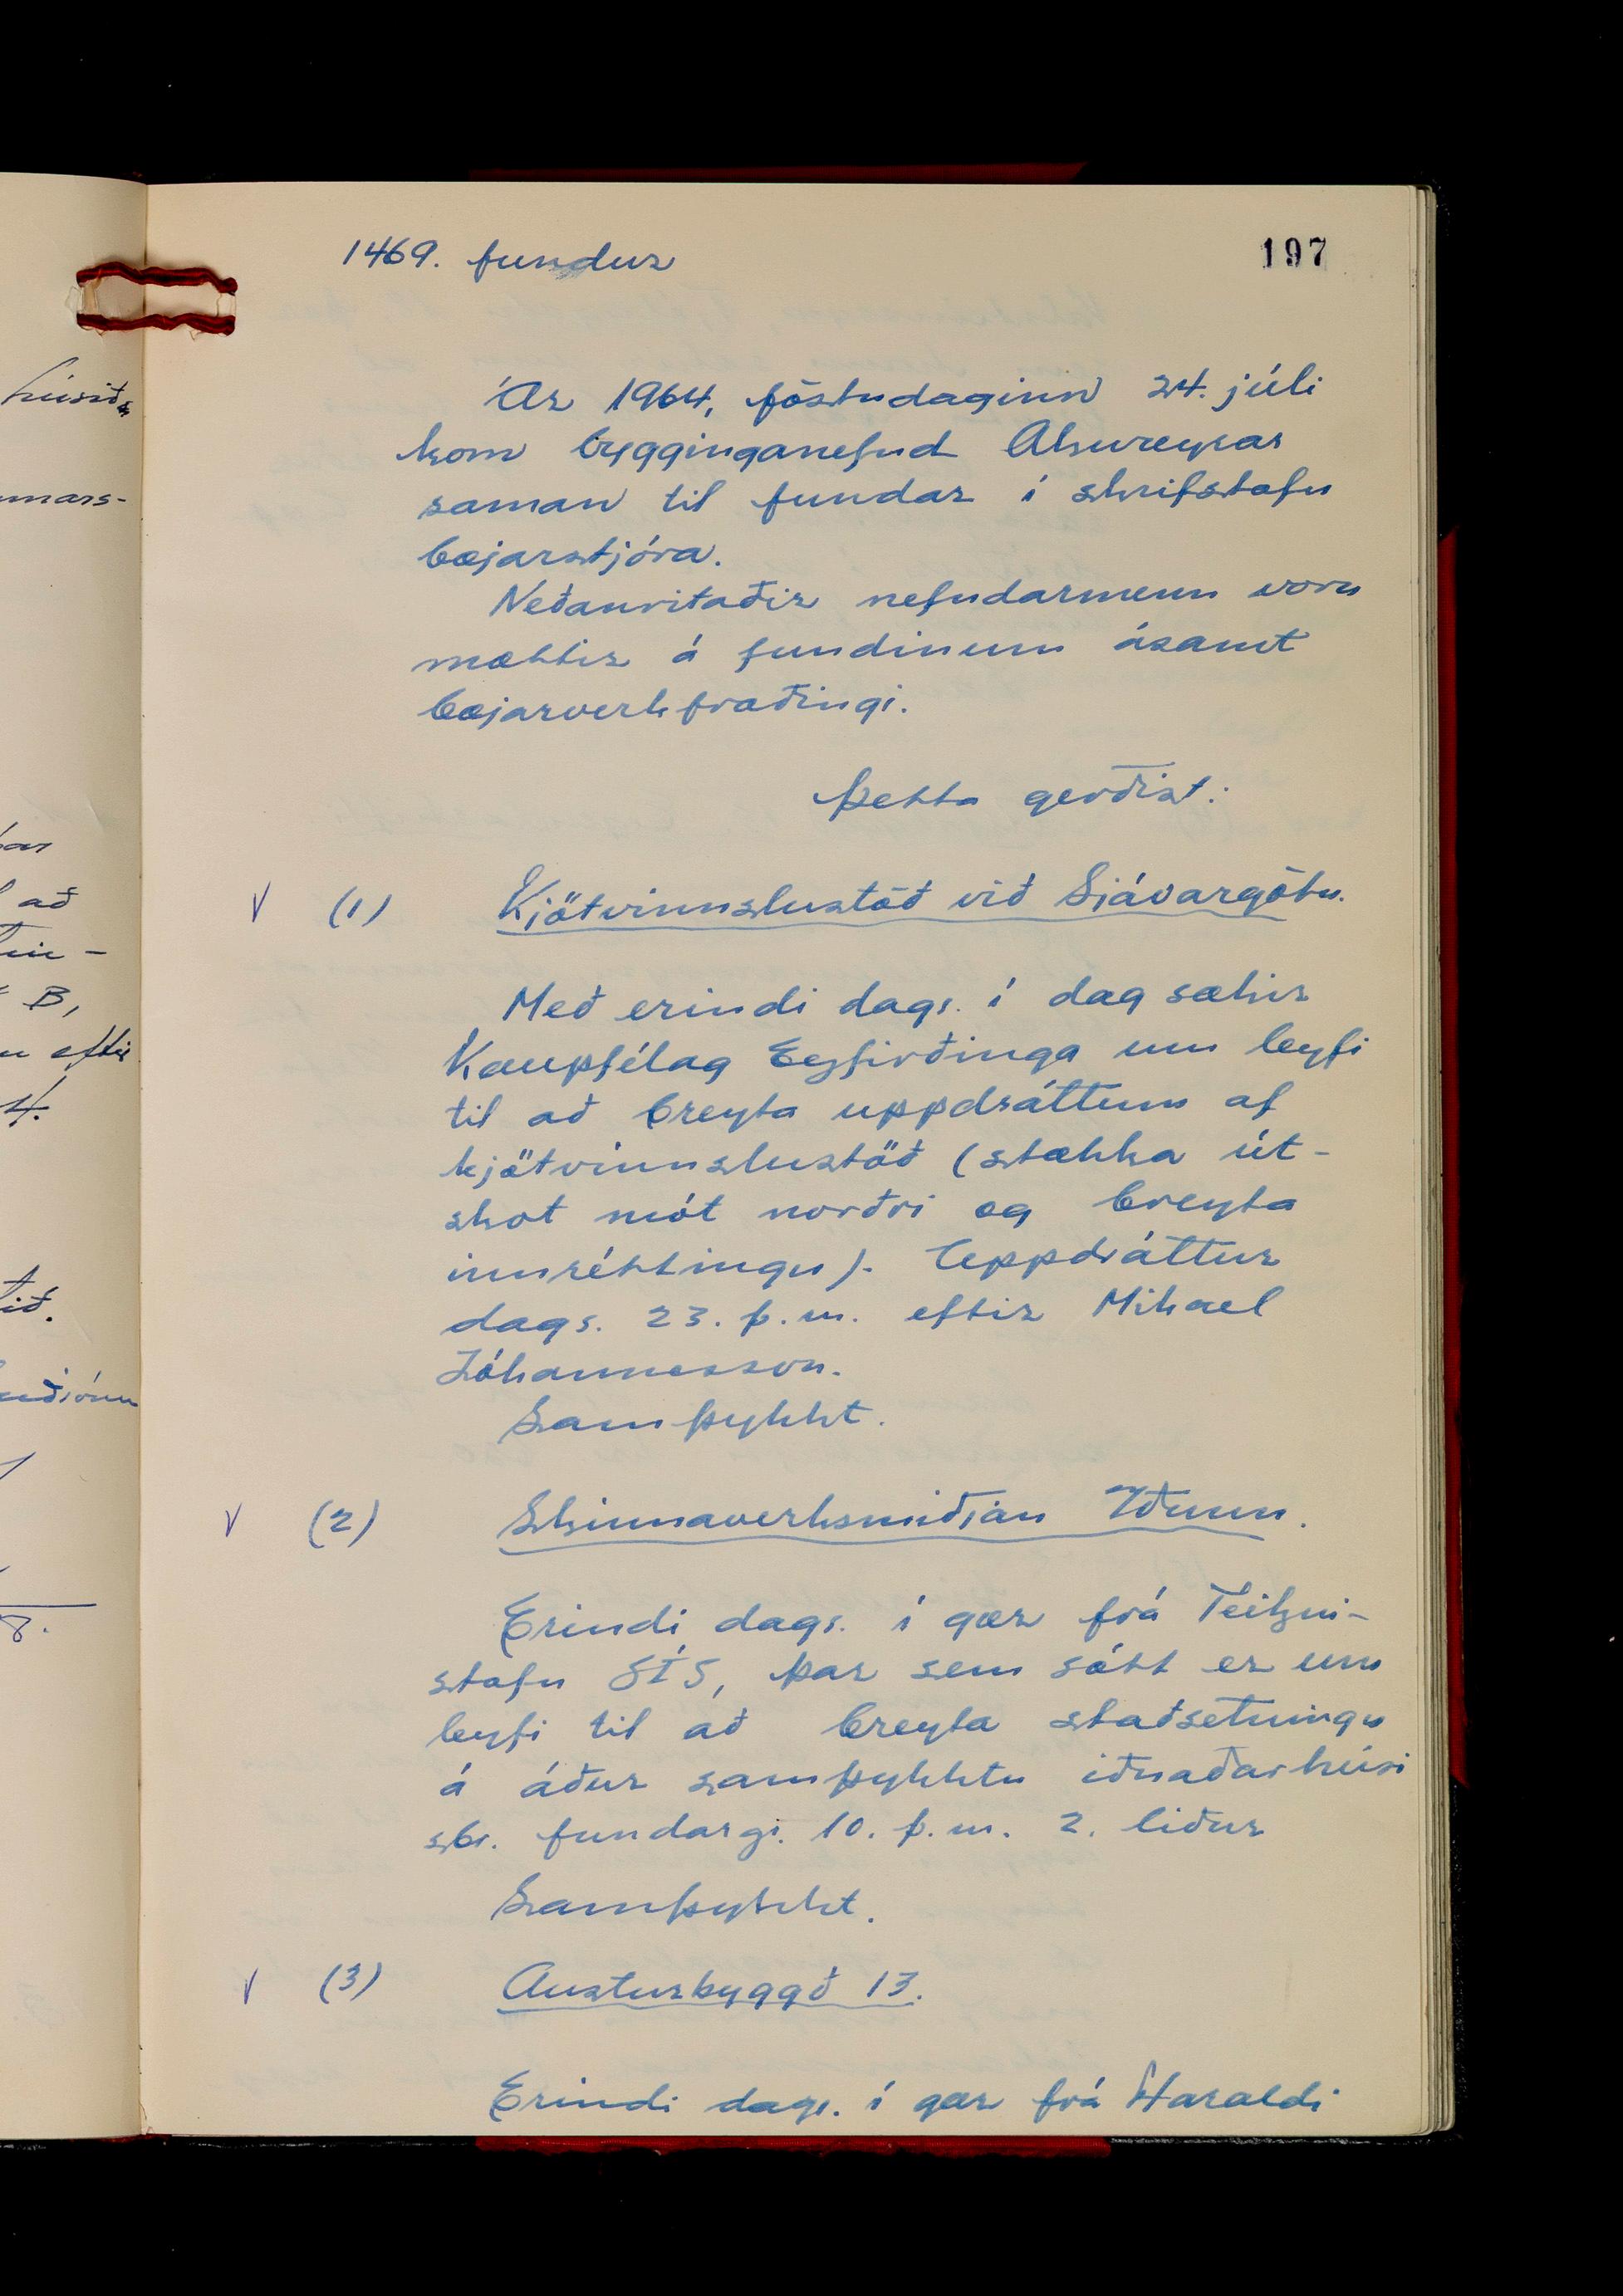 1469. fundur
197
Ár 1964, föstudaginn 24. júlí
kom bygginganefnd Akureyrar
saman til fundar í skrifstofu
bæjarstjóra.
Neðanritaðir nefndarmenn voru
mættir á fundinum ásamt
bæjarverkfræðingi.
Þetta gerðist:
V (1) Kjötvinnslustöð við Sjávargötu.
Með erindi dags. í dag sækir
Kaupfélag Eyfirðinga um leyfi
til að breyta uppdráttum af
kjötvinnslustöð (stækka út-
skot mót norðri og breyta
innréttingu). Uppdráttur
dags. 23. þ.m. eftir Mikael
Jóhannesson.
Samþykkt.
V (2) Skinnaverksmiðjan Iðunn.
Erindi dags. í gær frá Teikni-
stofu SÍS, þar sem sótt er um
leyfi til að breyta staðsetningu
á áður samþykktu iðnaðarhúsi
sbr. fundarg. 10. þ.m. 2. liður
Samþykkt.
V (3) Austurbyggð 13.
Erindi dags. í gær frá Haraldi
húsið
að
B,
eftir